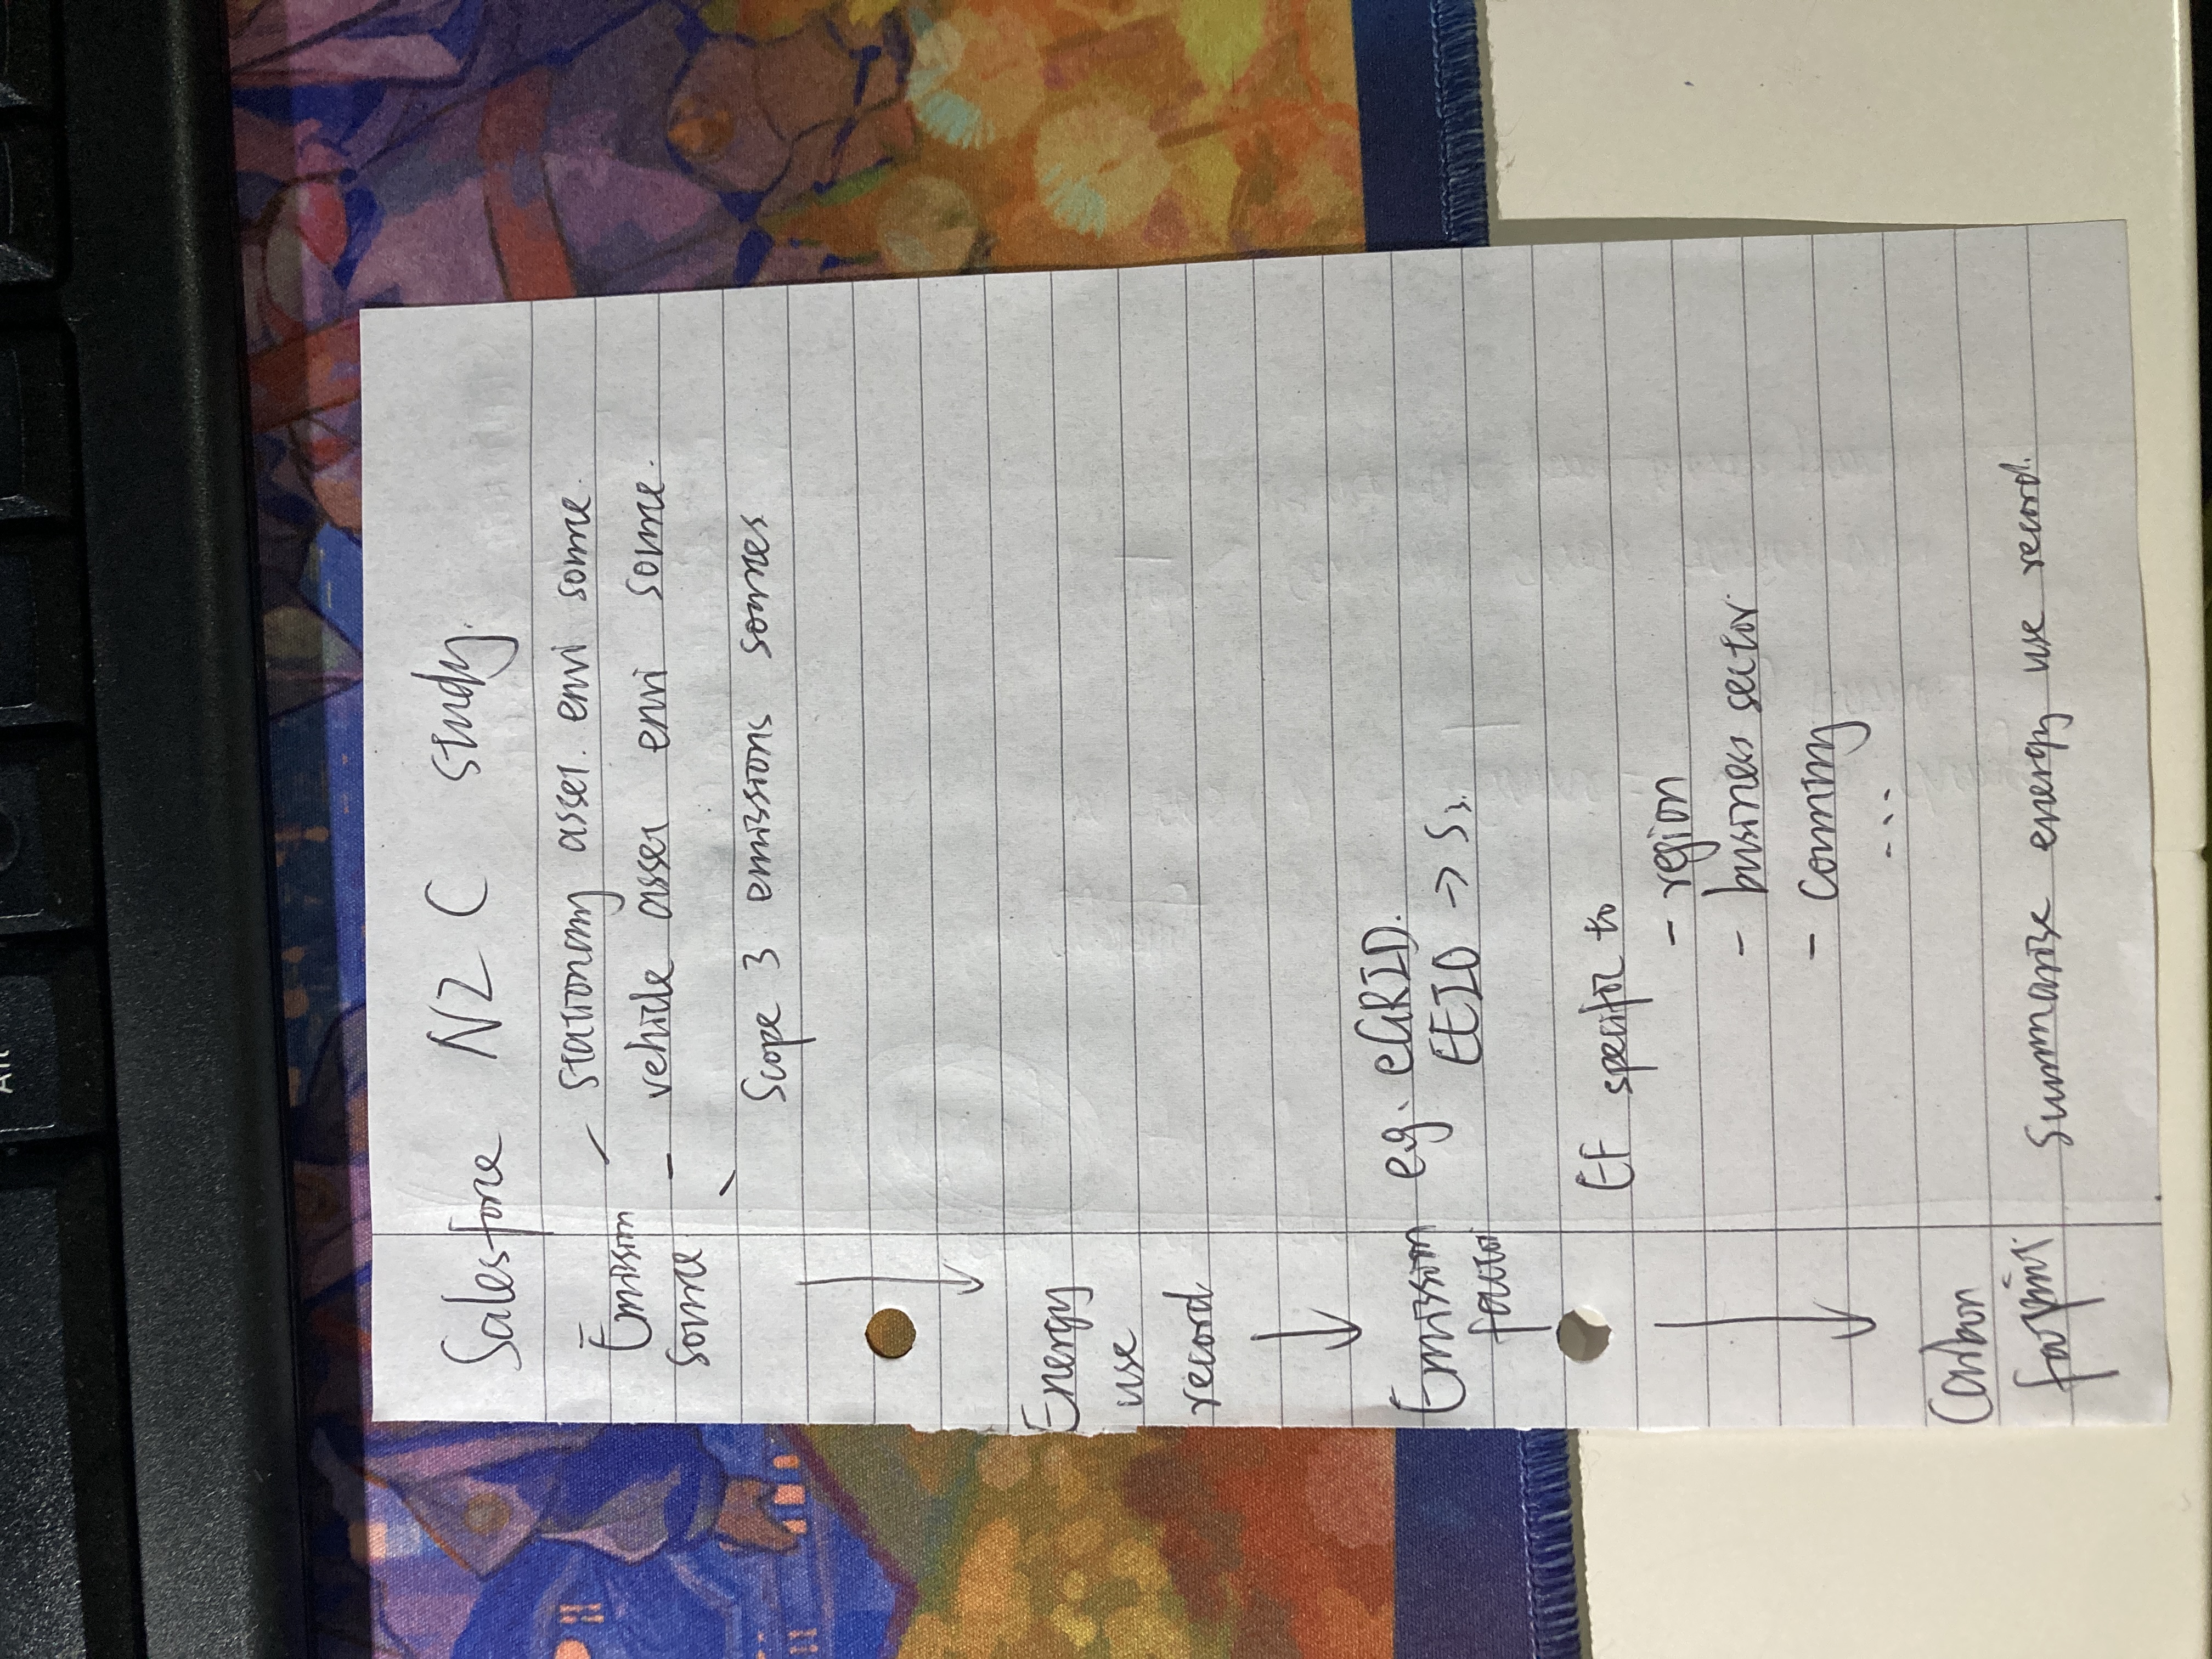 Alt
Salesforce NZ C study.
Emission source
- stationary asset. envi source.
- vehicle asset envi source.
- Scope 3 emissions sources
↓
Energy
use
record
↓
Emission factor
e.g. eGRID.
EEIO → S3.
EF specific to
- region
- business sector
- country
...
↓
Carbon
footprint
summarise energy use record.